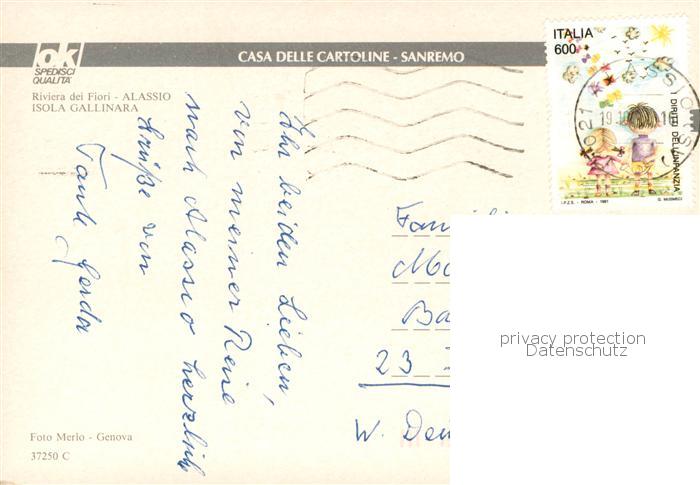 ok
SPEDISCI
QUALITÀ
CASA DELLE CARTOLINE - SANREMO
Riviera dei Fiori - ALASSIO
ISOLA GALLINARA
ITALIA
600
DIRITTI DELL'INFANZIA
I.P.Z.S. - ROMA - 1991
ALASSIO
19.10
16
Ihr beiden Lieben,
von meiner Reise
nach Alassio herzlich
Grüße von
Tante Gerda
Famili
Mo
Ba
23
W. Deu
privacy protection
Datenschutz
Foto Merlo - Genova
37250 C